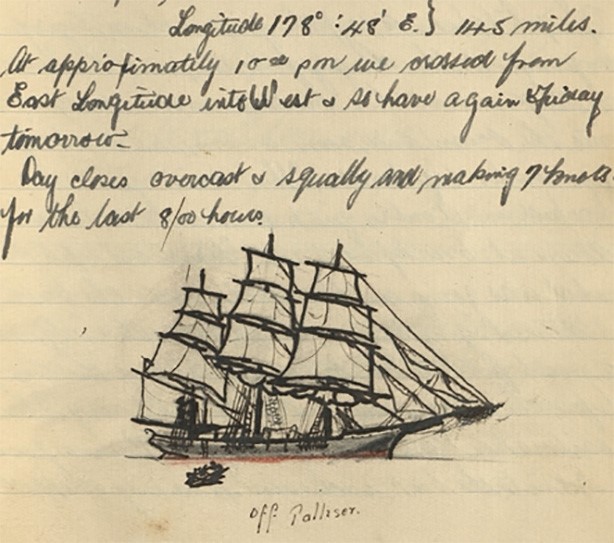 Longitude 178° : 48' E. } 145 miles.
At approximatily 10⁰⁰ pm we crossed from
East Longitude into West & so have again Friday
tomorrow-
Day closes overcast & squally and making 7 knots
for the last 8/00 hours.
Off Palliser.